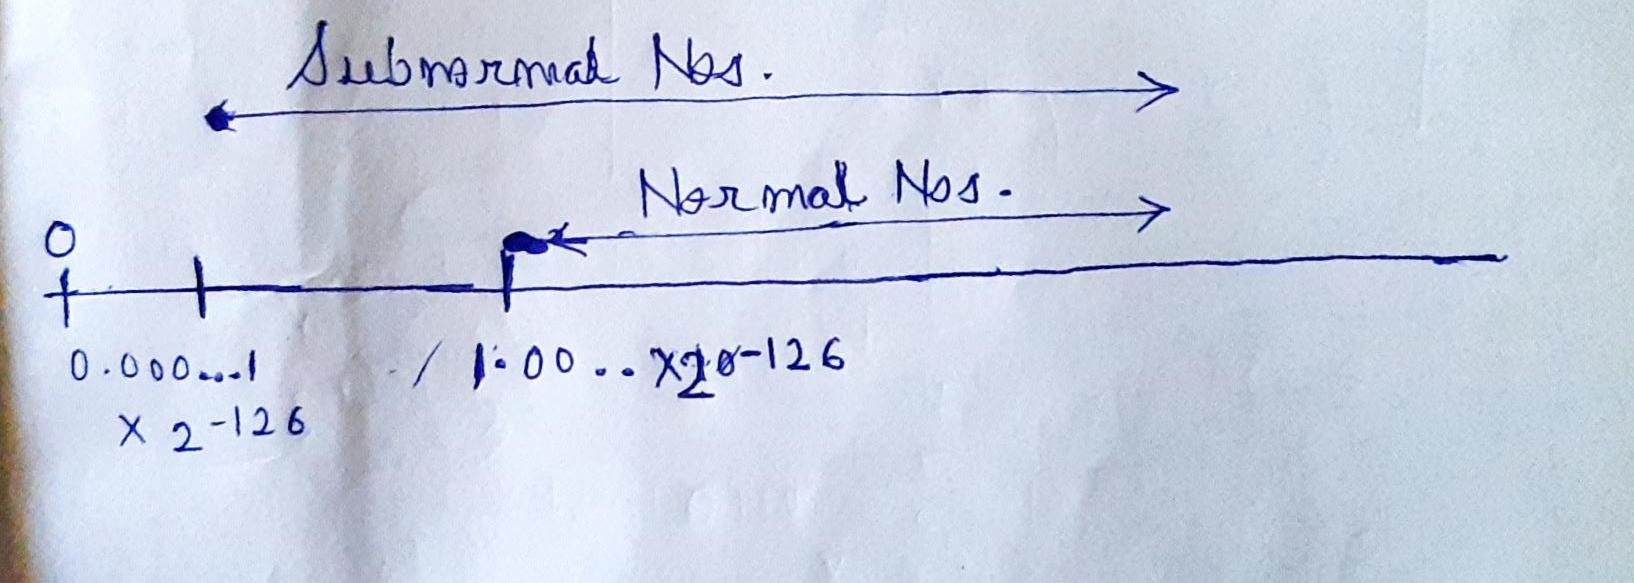 Subnormal Nos.
Normal Nos.
0
0.000....1
x 2-126
/ 1.00.. x2-126